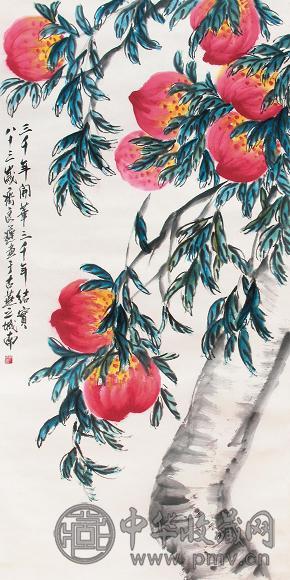 三千年開華三千年結實
八十三歲齊良遲畫于古燕之城南
中华收藏网
www.pmv.cn